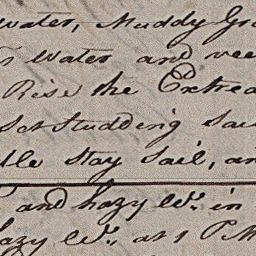 water, Muddy Gr
Water and vee
Rise the Extrea
Set Studding Sai
dle Stay Sail, an
and hazy Wr. in
hazy Wr. at 1 PM